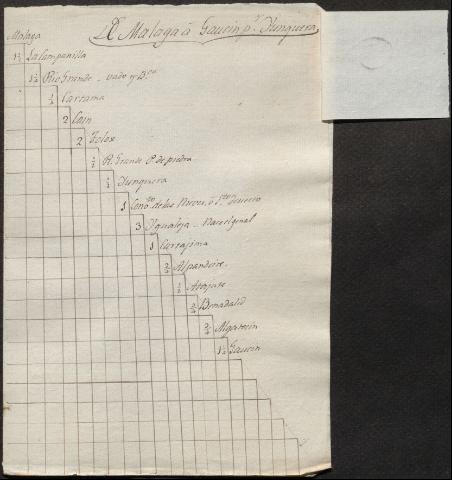 De Malaga à Gaucin pr. Yunquera
Malaga
1½ La Campanilla
1½ Rio Grande - vado y Bca
½ Cartama
2 Coin
2 Tolox
½ R. Grande P. de piedra
½ Yunquera
1 Convto de las Nieves, ò
3 Ygualeja - Nace el Genal
1 Cartajima
Alpandeire
½ Atajate
¾ Benadalid
¾ Algatocin
1¼ Gaucin